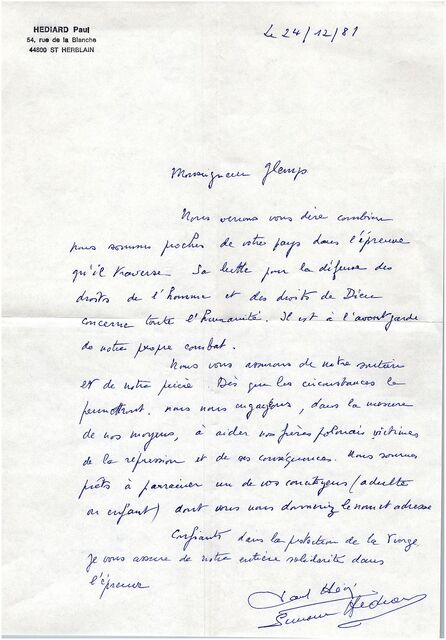 HEDIARD Paul
54, rue de la Blanche
44800 ST HERBLAIN
Le 24/12/81
Monseigneur Glemp
Nous venons vous dire combien
nous sommes proches de votre pays dans l'épreuve
qu'il traverse. Sa lutte pour la défense des
droits de l'homme et des droits de Dieu
concerne toute l'humanité. Il est à l'avant garde
de notre propre combat.
Nous vous assurons de notre soutien
et de notre prière. Dès que les circonstances le
permettront, nous nous engageons, dans la mesure
de nos moyens, à aider nos frères polonais victimes
de la répression et de ses conséquences. Nous sommes
prêts à parrainer un de vos concitoyens (adulte
ou enfant) dont vous nous donnerez le nom et adresse
Confiants dans la protection de la Vierge
Je vous assure de notre entière solidarité dans
l'épreuve
Paul
Hediard